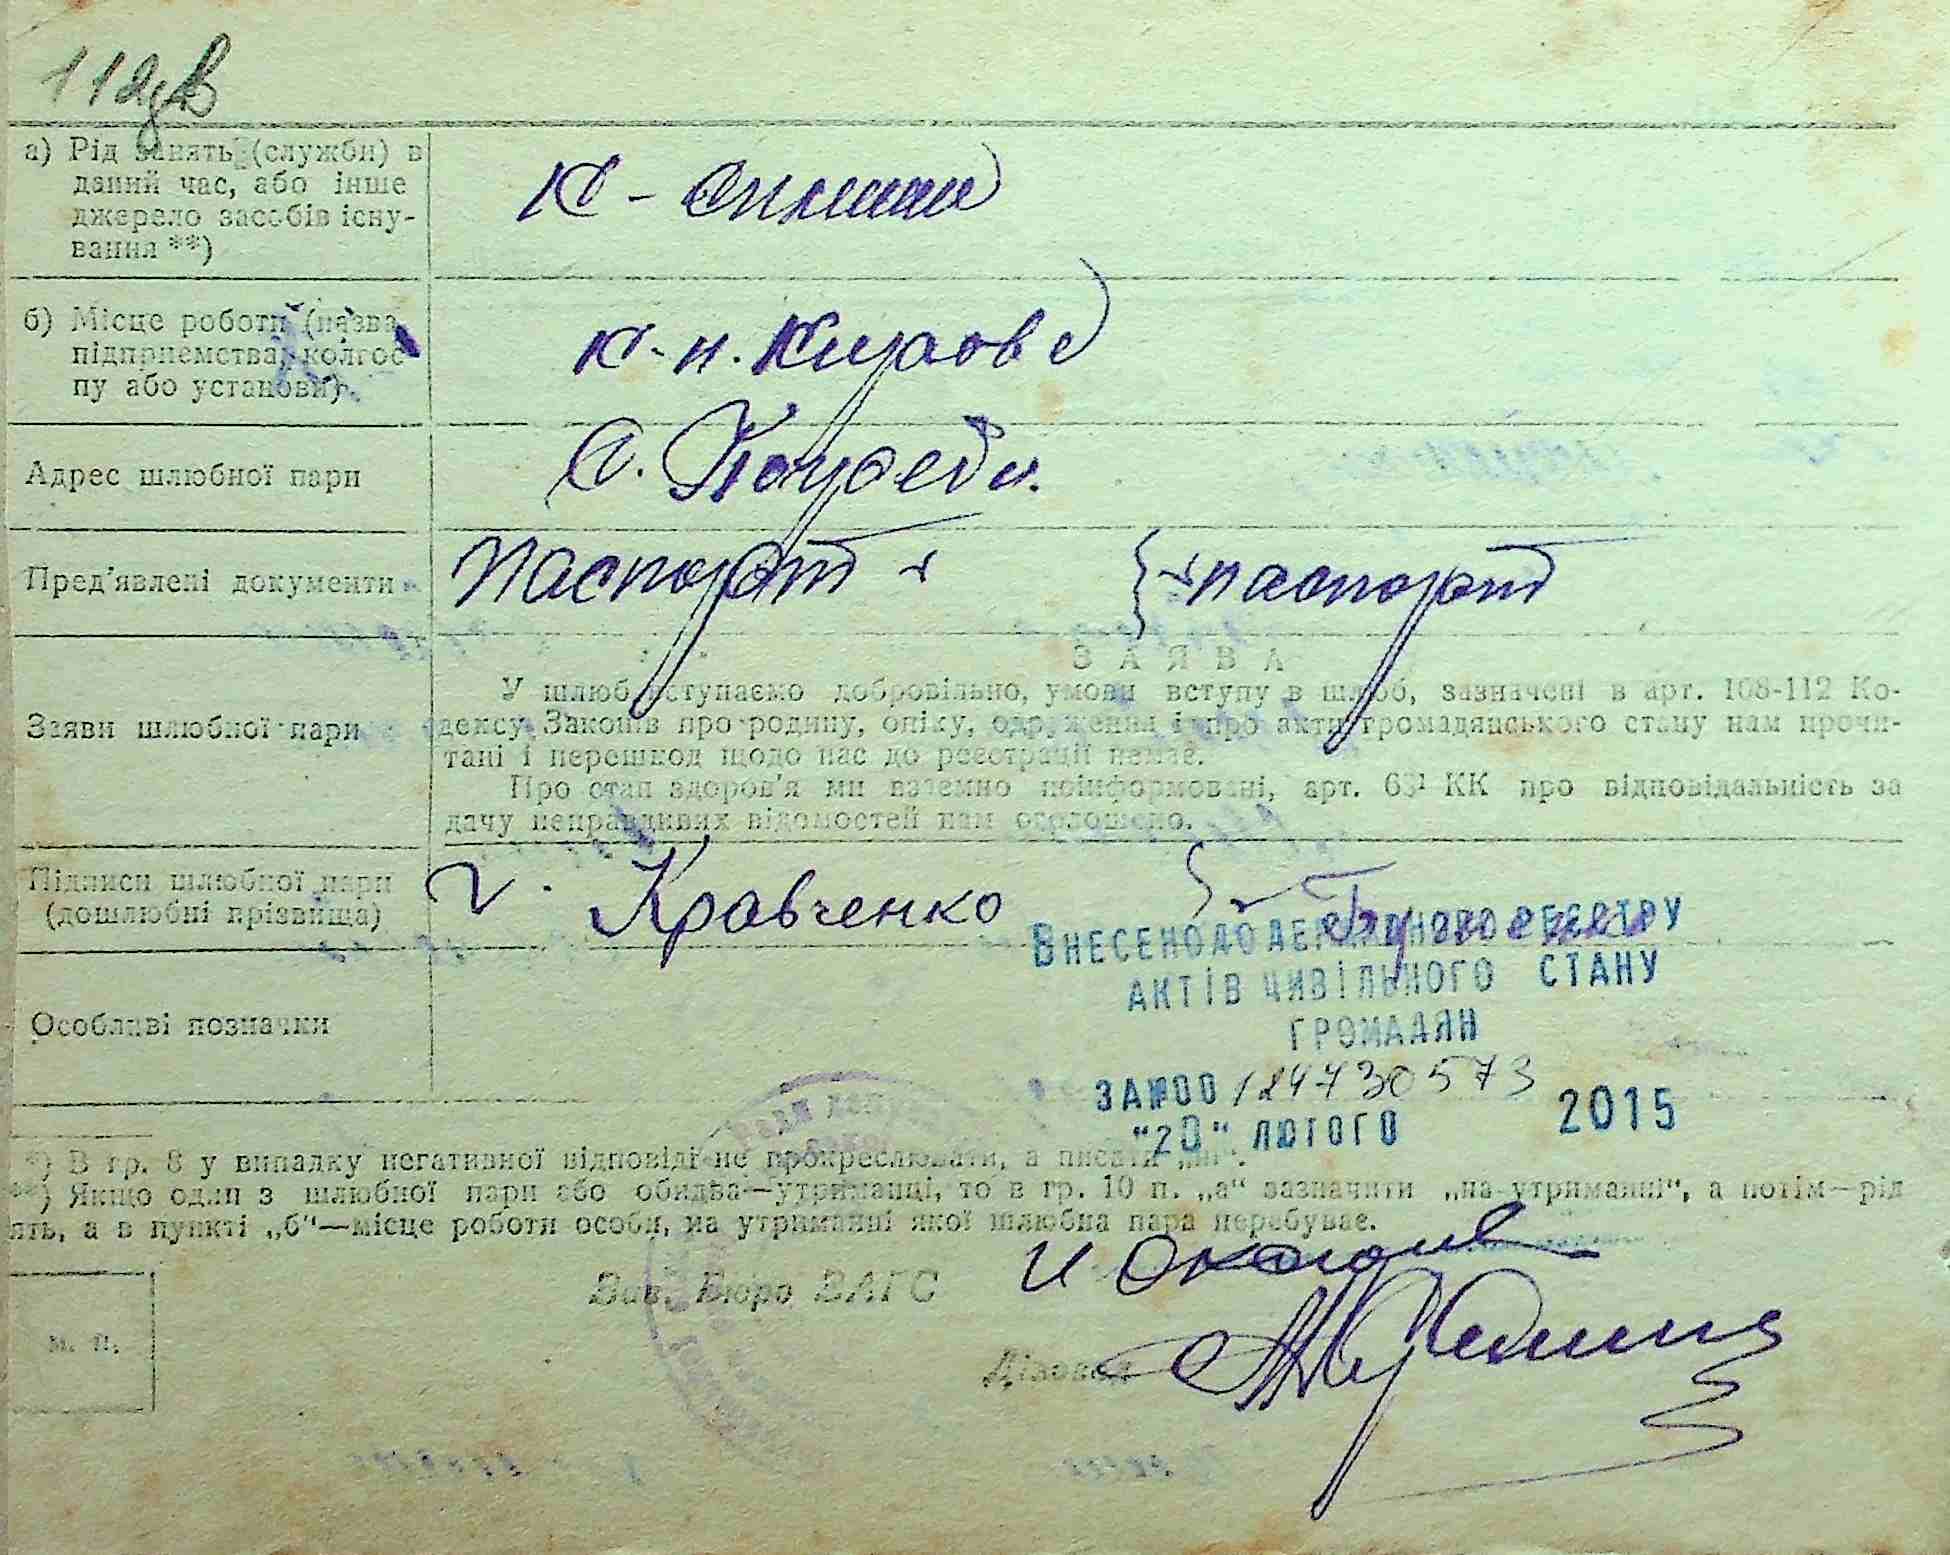 112
а) Рід занять (служби) в
даний час, або інше
джерело засобів існу-
вання **)
к-
б) Місце роботи (назва
підприємства, колгос-
пу або установи)
к-п. Кирова
Адрес шлюбної пари
с.
Пред'явлені документи
паспорт
паспорт
ЗАЯВА
Заяви шлюбної пари
У шлюб вступаємо добровільно, умови вступу в шлюб, зазначені в арт. 108-112 Ко-
дексу Законів про родину, опіку, одруження і про акти громадянського стану нам прочи-
тані і перешкод щодо нас до реєстрації немає.
Про стан здоров'я ми взаємно поінформовані, арт. 63¹ КК про відповідальність за
дачу неправдивих відомостей нам оголошено.
Підписи шлюбної пари
(дошлюбні прізвища)
Кравченко
ВНЕСЕНО ДО ДЕРЖАВНОГО РЕЄСТРУ
АКТІВ ЦИВІЛЬНОГО СТАНУ
ГРОМАДЯН
Особливі позначки
ЗА №00124730573
"20" ЛЮТОГО 2015
*) В гр. 8 у випадку негативної відповіді не прокреслювати, а писати „ні".
**) Якщо один з шлюбної пари або обидва—утриманці, то в гр. 10 п. „а" зазначити „на утриманні", а потім—рід
ять, а в пункті „б"—місце роботи особи, на утриманні якої шлюбна пара перебуває.
Зав. Бюро ЗАГС
м. п.
Діловод